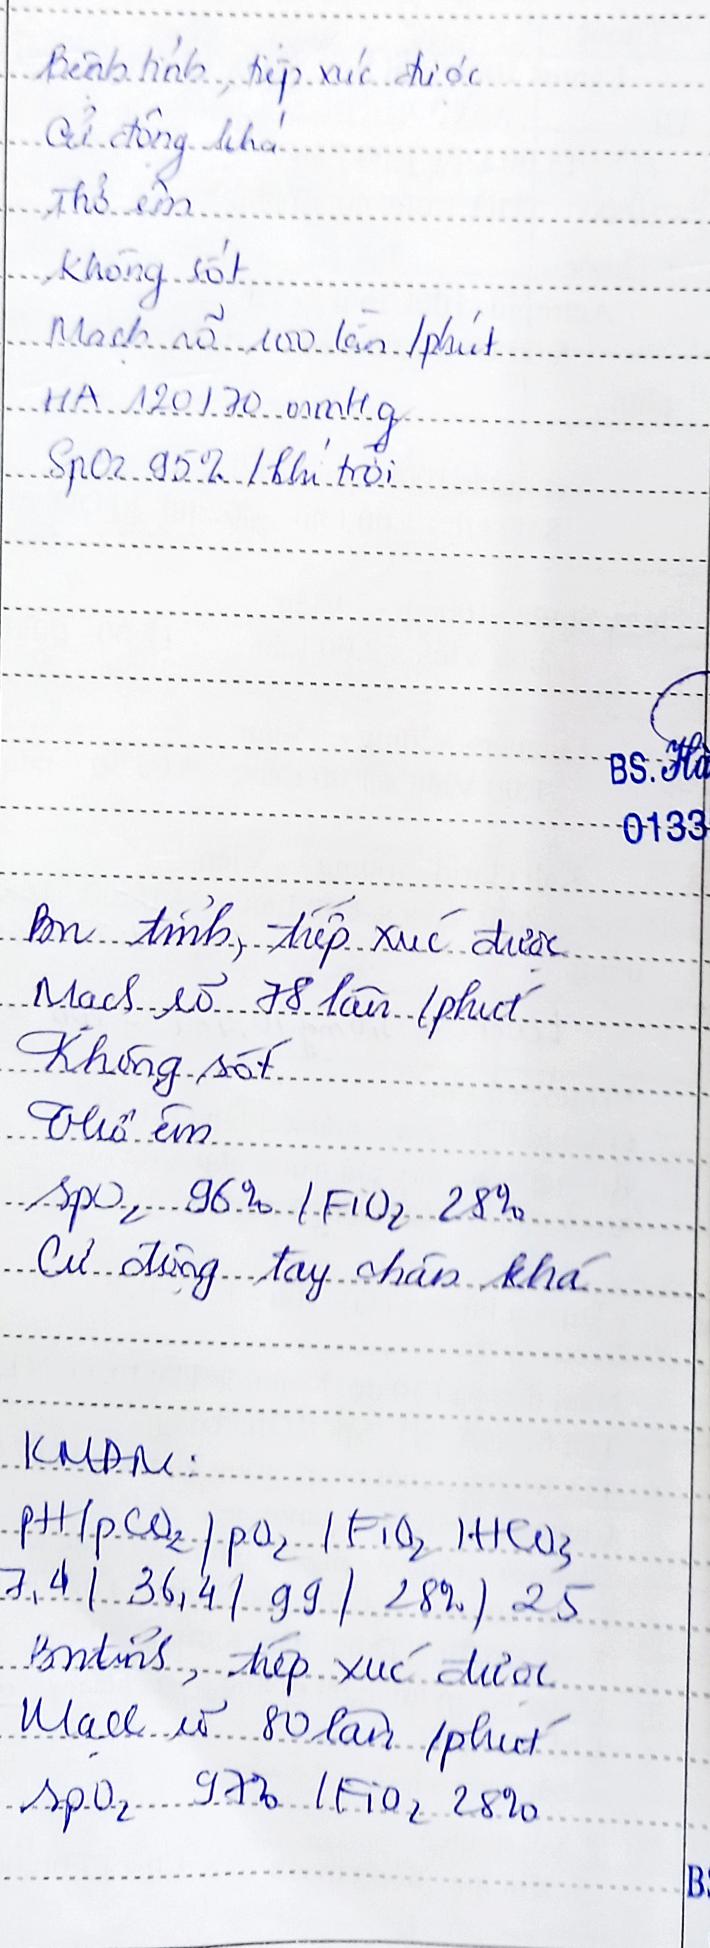 Bệnh tỉnh, tiếp xúc được
Cử động khá
Thở êm
Không sốt
Mạch rõ 100 lần /phút
HA 120/70 mmHg
SpO2 95% / khí trời
BS. Hà
0133
Bn tỉnh, tiếp xúc được
Mạch rõ 78 lần /phút
Không sốt
Thở êm
SpO2 96% / FiO2 28%
Cử động tay chân khá
KMĐM:
pH/pCO2/pO2/FiO2/HCO3
7,4/ 36,4/ 99/ 28%/ 25
Bn tỉnh, tiếp xúc được
Mạch rõ 80 lần /phút
SpO2 97% / FiO2 28%
BS